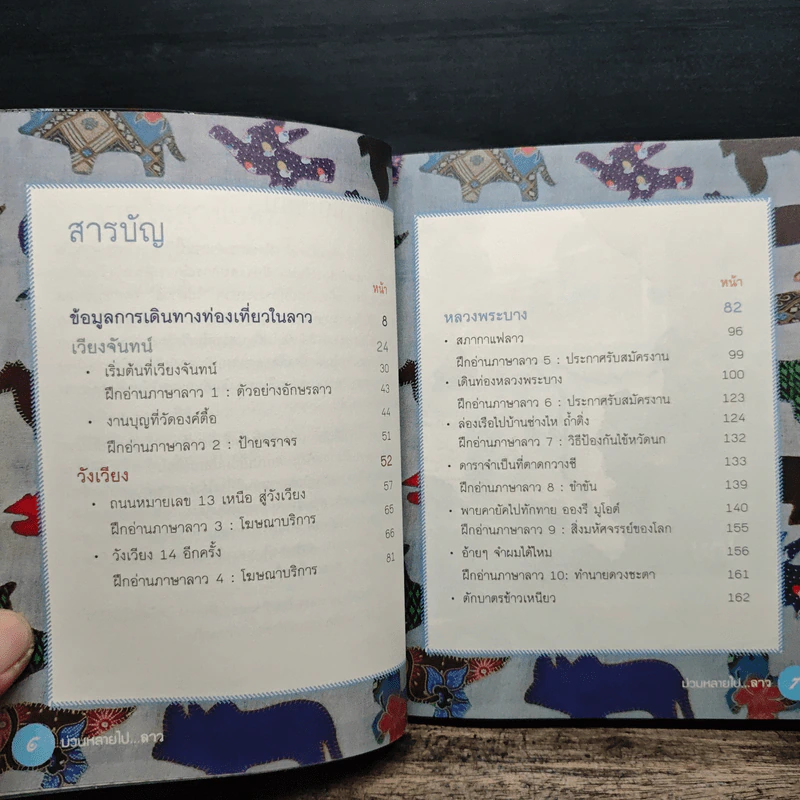 สารบัญ
หน้า
ข้อมูลการเดินทางท่องเที่ยวในลาว 8
เวียงจันทน์ 24
• เริ่มต้นที่เวียงจันทน์ 30
ฝึกอ่านภาษาลาว 1 : ตัวอย่างอักษรลาว 43
• งานบุญที่วัดองค์ตื้อ 44
ฝึกอ่านภาษาลาว 2 : ป้ายจราจร 51
วังเวียง 52
• ถนนหมายเลข 13 เหนือ สู่วังเวียง 57
ฝึกอ่านภาษาลาว 3 : โฆษณาบริการ 65
• วังเวียง 14 อีกครั้ง 66
ฝึกอ่านภาษาลาว 4 : โฆษณาบริการ 81
๖ ม่วนหลายไป...ลาว
หน้า
หลวงพระบาง 82
• สภากาแฟลาว 96
ฝึกอ่านภาษาลาว 5 : ประกาศรับสมัครงาน 99
• เดินท่องหลวงพระบาง 100
ฝึกอ่านภาษาลาว 6 : ประกาศรับสมัครงาน 123
• ล่องเรือไปบ้านช่างไห ถ้ำติ่ง 124
ฝึกอ่านภาษาลาว 7 : วิธีป้องกันไข้หวัดนก 132
• ดาราจำเป็นที่ตาดกวางซี 133
ฝึกอ่านภาษาลาว 8 : ขำขัน 139
• พายคายัคไปทักทาย อองรี มูโอต์ 140
ฝึกอ่านภาษาลาว 9 : สิ่งมหัศจรรย์ของโลก 155
• อ้ายๆ จำผมได้ไหม 156
ฝึกอ่านภาษาลาว 10: ทำนายดวงชะตา 161
• ตักบาตรข้าวเหนียว 162
ม่วนหลายไป...ลาว ๗